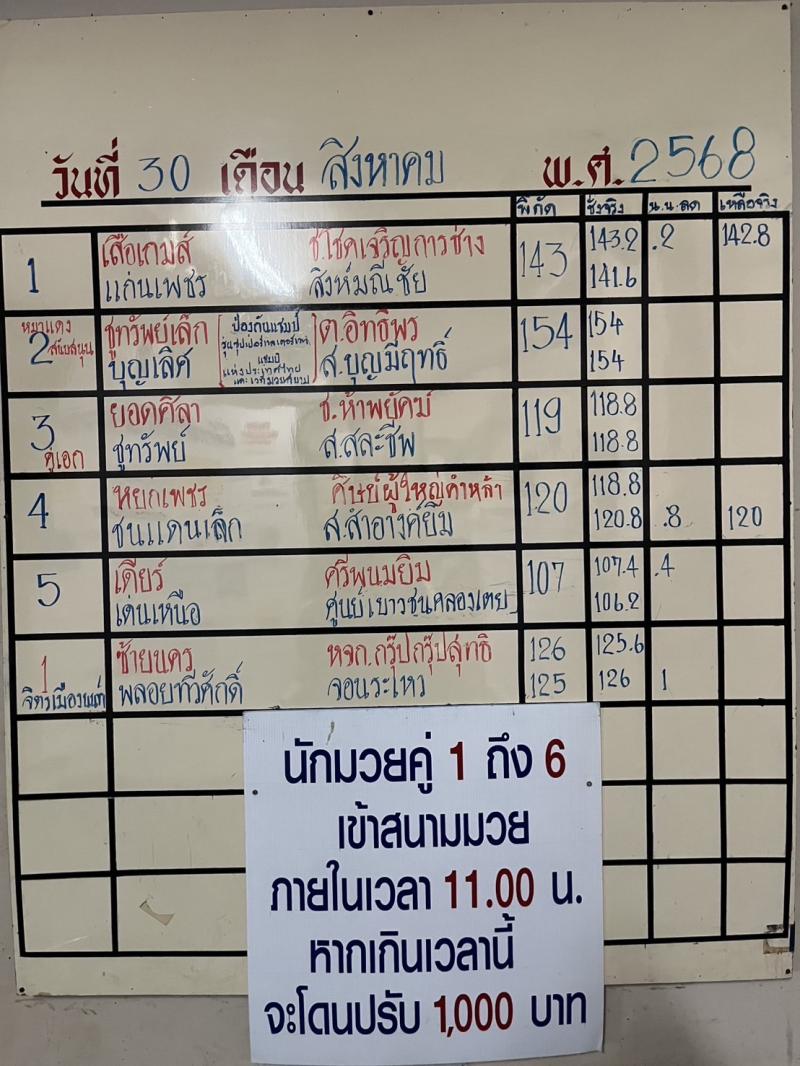 วันที่ 30 เดือน สิงหาคม พ.ศ. 2568
พิกัด ชั่งจริง น.น.ลด เหลือจริง
1 เสือเกมส์ ช.โชคเจริญการช่าง 143 143.2 .2 142.8
แก่นเพชร สิงห์มณีชัย 141.6
หมาแดง สนับสนุน
2 ชูทรัพย์เล็ก ต.อิทธิพร 154 154
บุญเลิศ ส.บุญมีฤทธิ์ 154
ป้องกันแชมป์
แชมป์
แห่งประเทศไทย
3 ยอดศิลา ช.ห้าพยัคฆ์ 119 118.8
คู่เอก ชูทรัพย์ ส.สละชีพ 118.8
4 หยกเพชร ศิษย์ผู้ใหญ่คำหล้า 120 118.8
ชนแดนเล็ก ส.สำอางค์ยิม 120.8 .8 120
5 เดียร์ ศรีพนมยิม 107 107.4 .4
เด่นเหนือ ศูนย์เยาวชนคลองเตย 106.2
1 ซ้ายนคร หจก.กรุ๊ปกรุ๊ปสุทธิ 126 125.6
จิตรเมืองนนท์ พลอยทวีศักดิ์ จอนระไหว 125 126 1
นักมวยคู่ 1 ถึง 6
เข้าสนามมวย
ภายในเวลา 11.00 น.
หากเกินเวลานี้
จะโดนปรับ 1,000 บาท